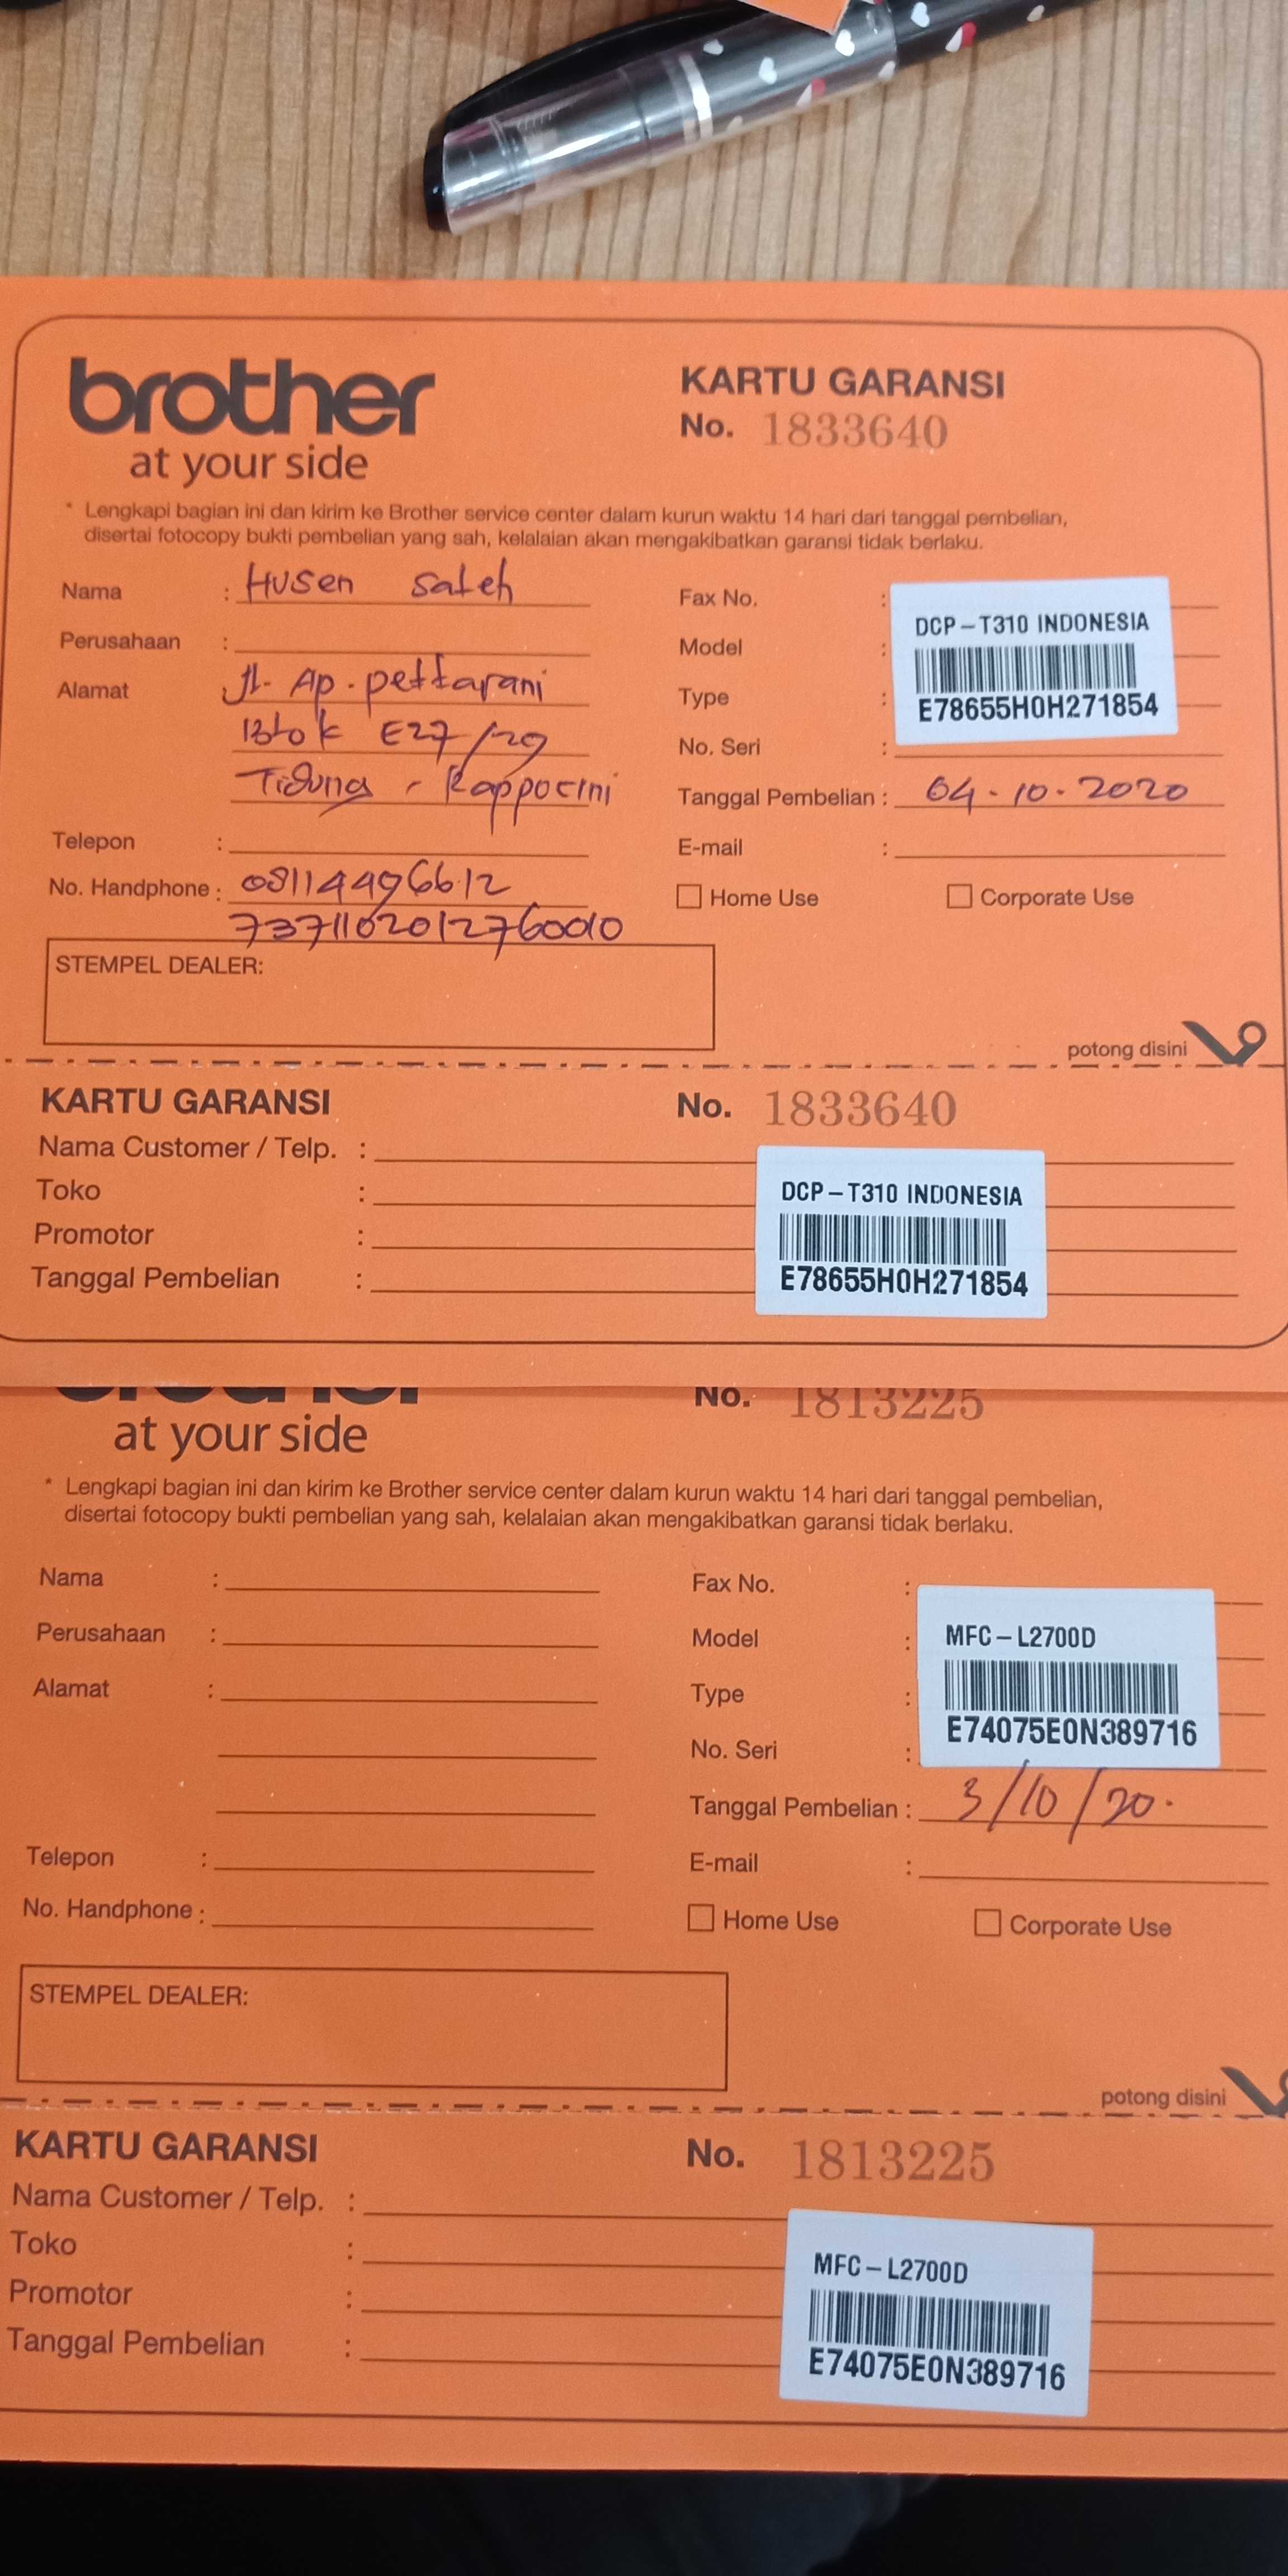 brother
at your side
KARTU GARANSI
No. 1833640
* Lengkapi bagian ini dan kirim ke Brother service center dalam kurun waktu 14 hari dari tanggal pembelian,
disertai fotocopy bukti pembelian yang sah, kelalaian akan mengakibatkan garansi tidak berlaku.
Nama : Husen Saleh
Perusahaan :
Alamat Jl. Ap. pettarani
Blok E27/29
Tidung - Rappocini
Telepon :
No. Handphone : 08114496612
7371102012760010
Fax No. :
Model :
Type :
No. Seri :
DCP-T310 INDONESIA
E78655H0H271854
Tanggal Pembelian : 04-10-2020
E-mail :
Home Use Corporate Use
STEMPEL DEALER:
potong disini
KARTU GARANSI No. 1833640
Nama Customer / Telp. :
Toko :
Promotor :
Tanggal Pembelian :
DCP-T310 INDONESIA
E78655H0H271854
No. 1813225
at your side
* Lengkapi bagian ini dan kirim ke Brother service center dalam kurun waktu 14 hari dari tanggal pembelian,
disertai fotocopy bukti pembelian yang sah, kelalaian akan mengakibatkan garansi tidak berlaku.
Nama :
Perusahaan :
Alamat :
Telepon :
No. Handphone :
Fax No. :
Model :
Type :
No. Seri :
MFC-L2700D
E74075E0N389716
Tanggal Pembelian : 3/10/20.
E-mail :
Home Use Corporate Use
STEMPEL DEALER:
potong disini
KARTU GARANSI No. 1813225
Nama Customer / Telp. :
Toko :
Promotor :
Tanggal Pembelian :
MFC-L2700D
E74075E0N389716